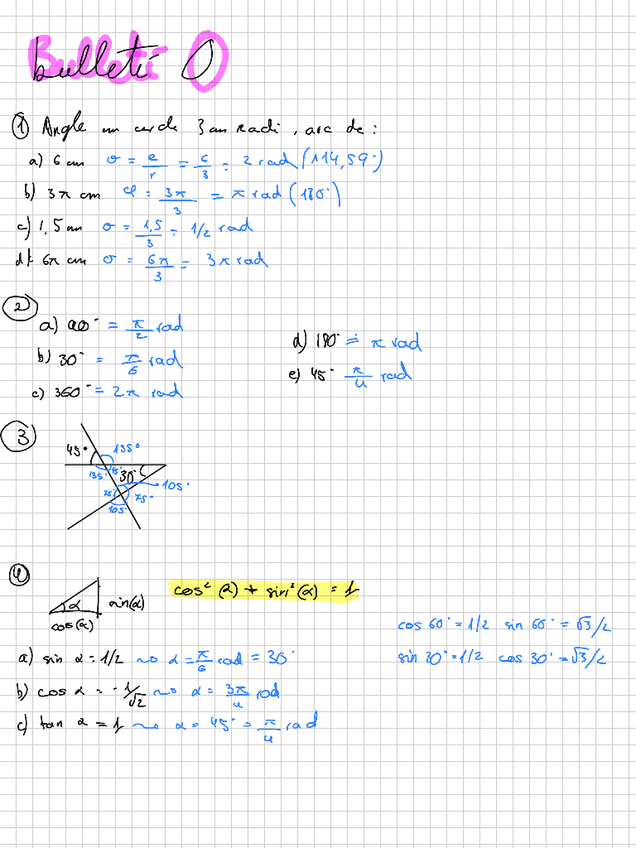 Bulletí 0
① Angle un cercle 3 cm Radi, arc de:
a) 6 cm σ = e/r = 6/3 = 2 rad (114,59°)
b) 3π cm φ = 3π/3 = π rad (180°)
c) 1,5 cm σ = 1,5/3 = 1/2 rad
d) 6π cm σ = 6π/3 = 3π rad
②
a) 90° = π/2 rad
b) 30° = π/6 rad
c) 360° = 2π rad
d) 180° = π rad
e) 45° π/4 rad
③
45° 135°
135° 45° 30°
75° 75° 105°
105°
④
cos²(α) + sin²(α) = 1
α sin(α)
cos(α)
cos 60° = 1/2 sin 60° = √3/2
sin 30° = 1/2 cos 30° = √3/2
a) sin α = 1/2 ~> α = π/6 rad = 30°
b) cos α = -1/√2 ~> α = 3π/4 rad
c) tan α = 1 ~> α = 45° = π/4 rad